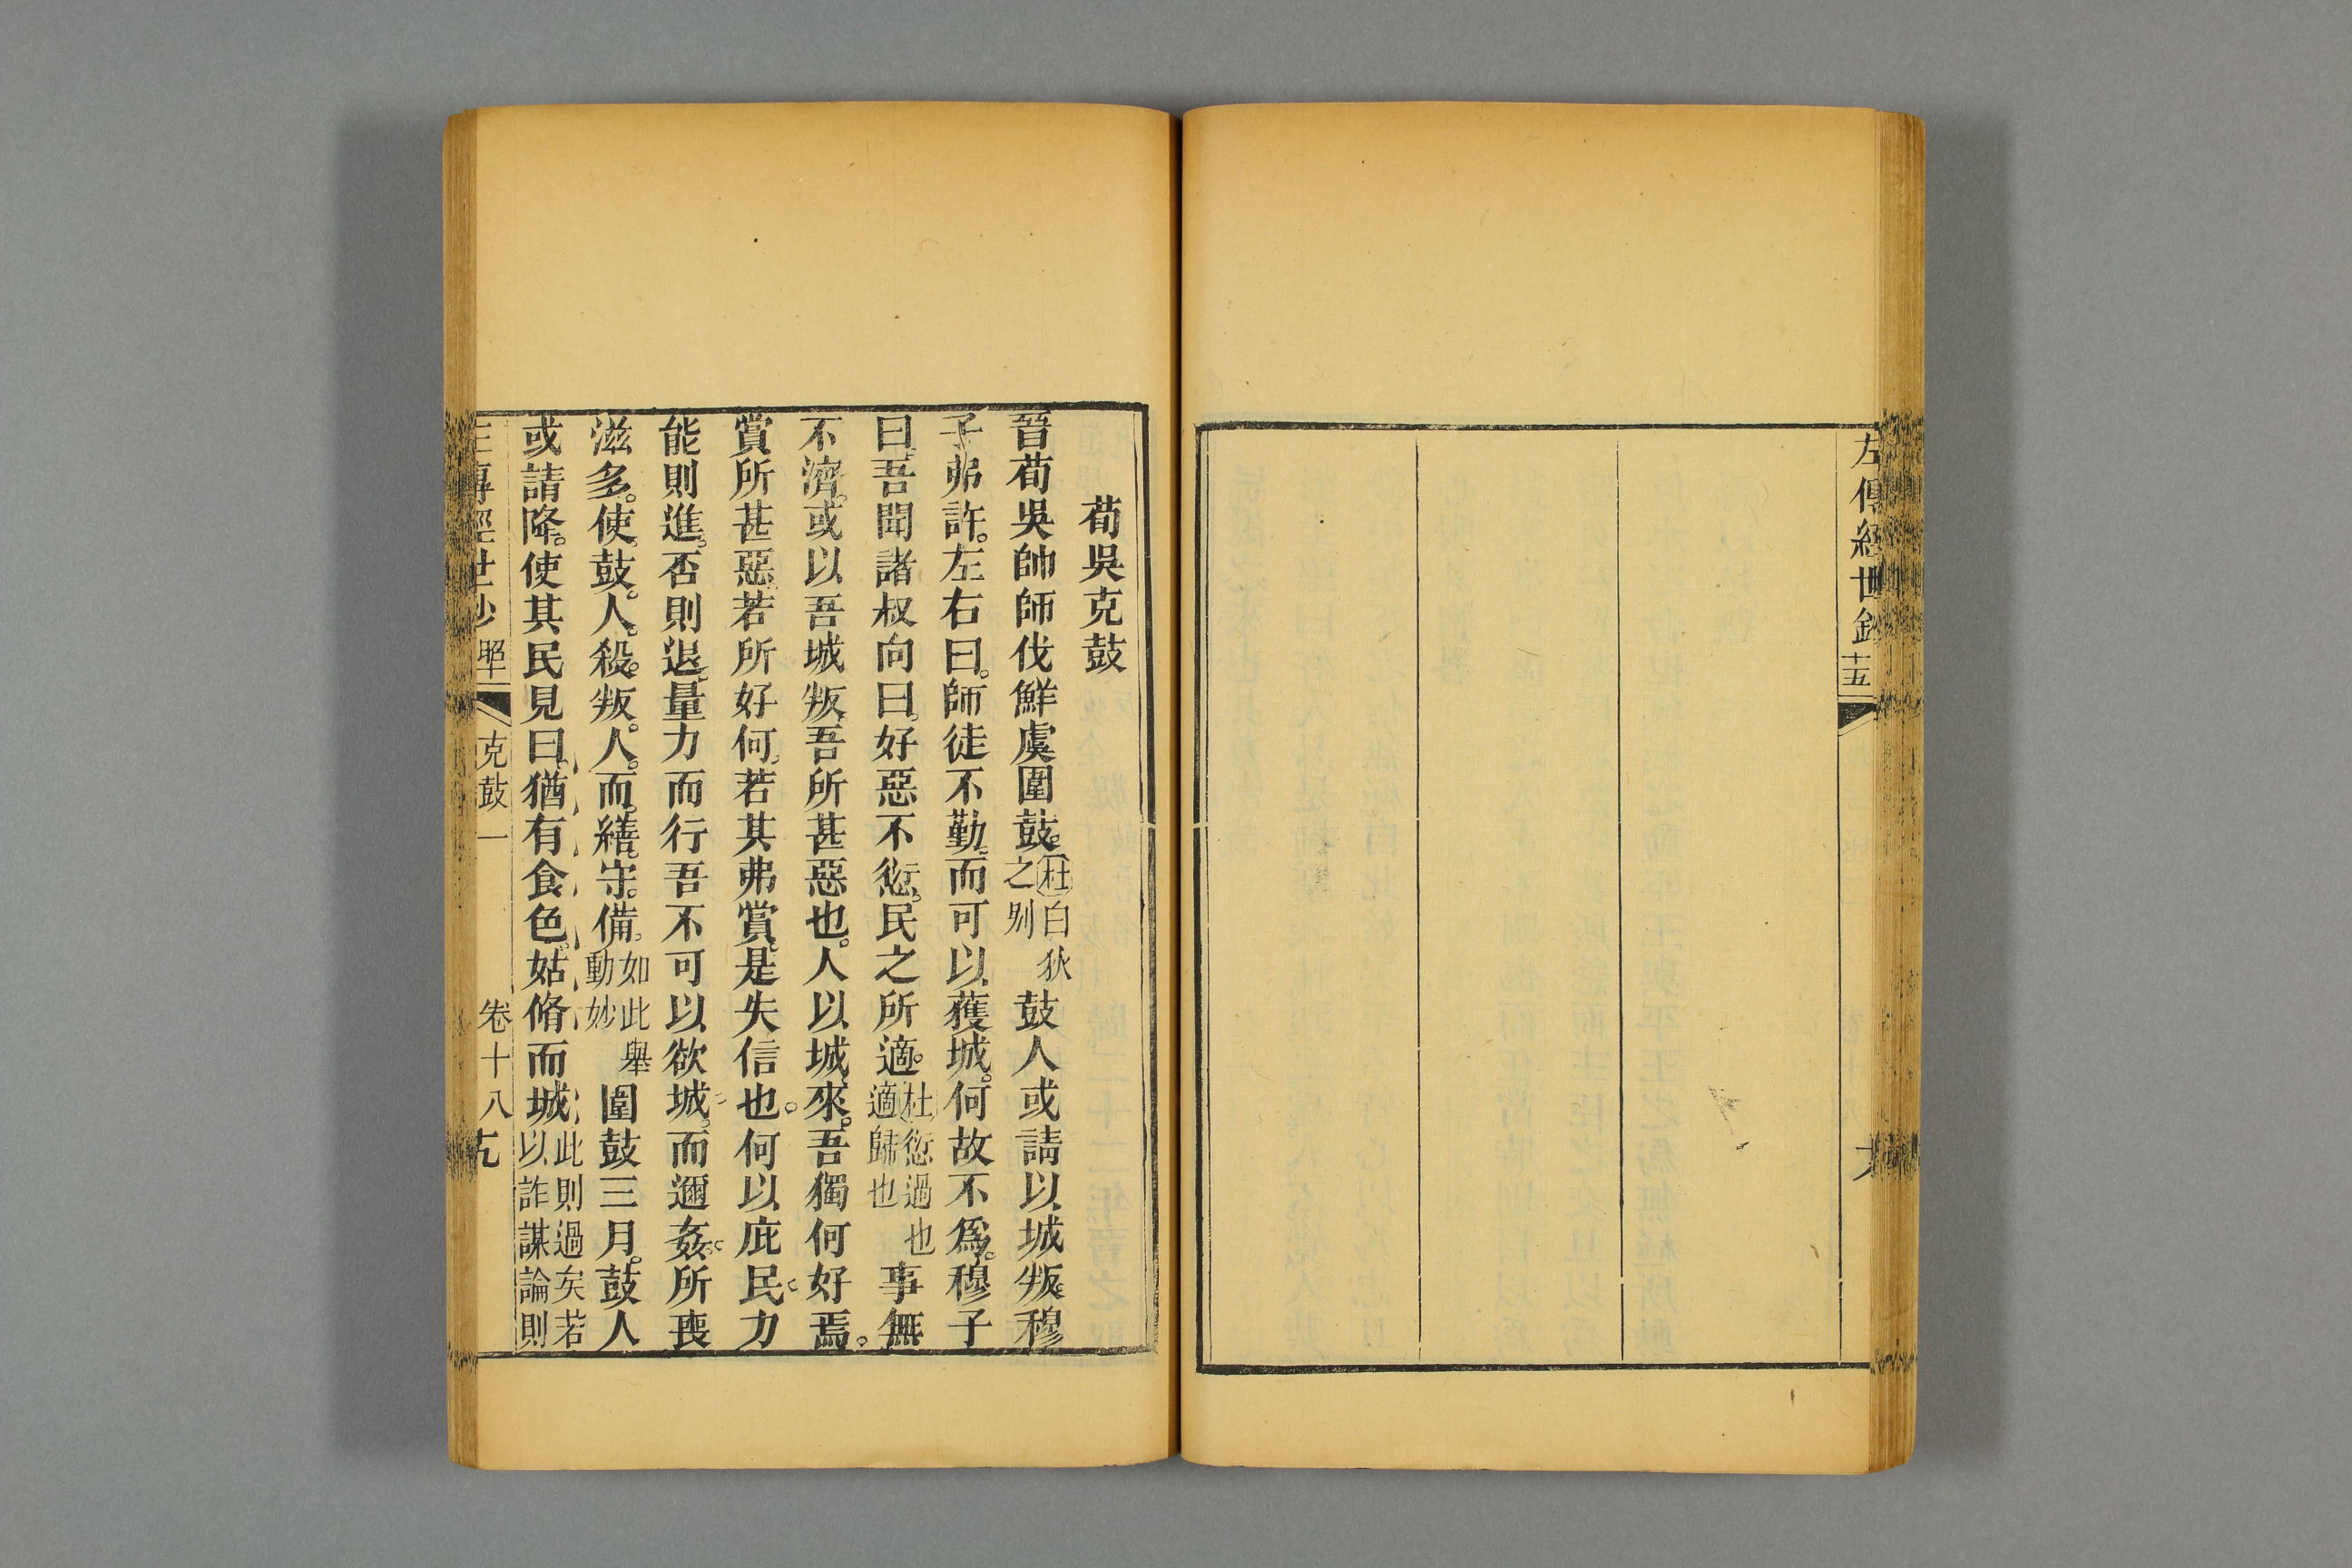 左傳經世鈔
十五
荀吳克鼓
晉荀吳帥師伐鮮虞圍鼓。杜白狄之别鼓人或請以城叛穆
子弗許。左右曰。師徒不勤而可以獲城。何故不爲。穆子
曰。吾聞諸叔向曰。好惡不愆。民之所適。杜愆過也適歸也事無
不濟。或以吾城叛吾所甚惡也。人以城來。吾獨何好焉。
賞所甚惡若所好何。若其弗賞。是失信也。何以庇民力
能則進。否則退。量力而行吾不可以欲城。而邇姦。所喪
滋多。使。鼓。人。殺。叛。人。而。繕。守。備。如此舉動妙圍鼓三月。鼓人
或請降。使其民見曰。猶有食色。姑脩而城此則過矣若以詐謀論則
克鼓一
卷十八